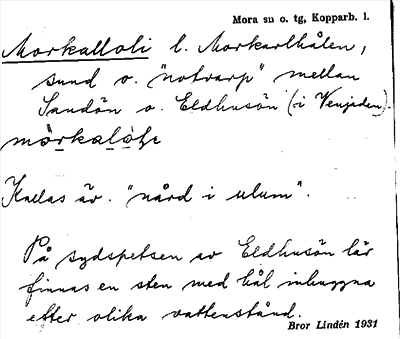 Mora su o. tg, Kopparb. l.
Morkalloli l. Morkarlhålen,
sund o. "notvarp" mellan
Sandön o. Eldhusön (i Venjaden).
Kallas äv. "nård i ulum".
På sydspetsen av Eldhusön lär
finnas en sten med hål inhuggna
efter olika vattenstånd.
Bror Lindén 1931